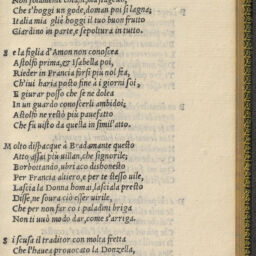 Che s'hoggi un gode, doman poi si lagna;
Italia mia gliè hoggi il tuo buon frutto
Giardino in parte, e sepoltura in tutto.
S e la figlia d'Amon non conoscea
Astolfo prima, et Isabella poi,
Rieder in Francia forsi piu nol fea,
Ch'iui haria posto fine a i giorni soi,
E giurar posso che se ne dolea
In un guardo conoscerli ambidoi;
Astolfo ne restò piu pauefatto
Che fu uisto da quella in simil'atto.
M olto dispacque à Bradamante questo
Atto, assai piu uillan, che signorile;
Borbottando, ubriaco dishonesto
Per Francia altiero, e per te stesso uile,
Lascia la Donna homai, lasciala presto
Disse, ne soura ciò esser uirile,
Che per non far co i paladini briga
Non ti uuò modo dar, come s'arriga.
S i scusa il traditor con molta fretta
Che l'hauea prouocato la Donzella,